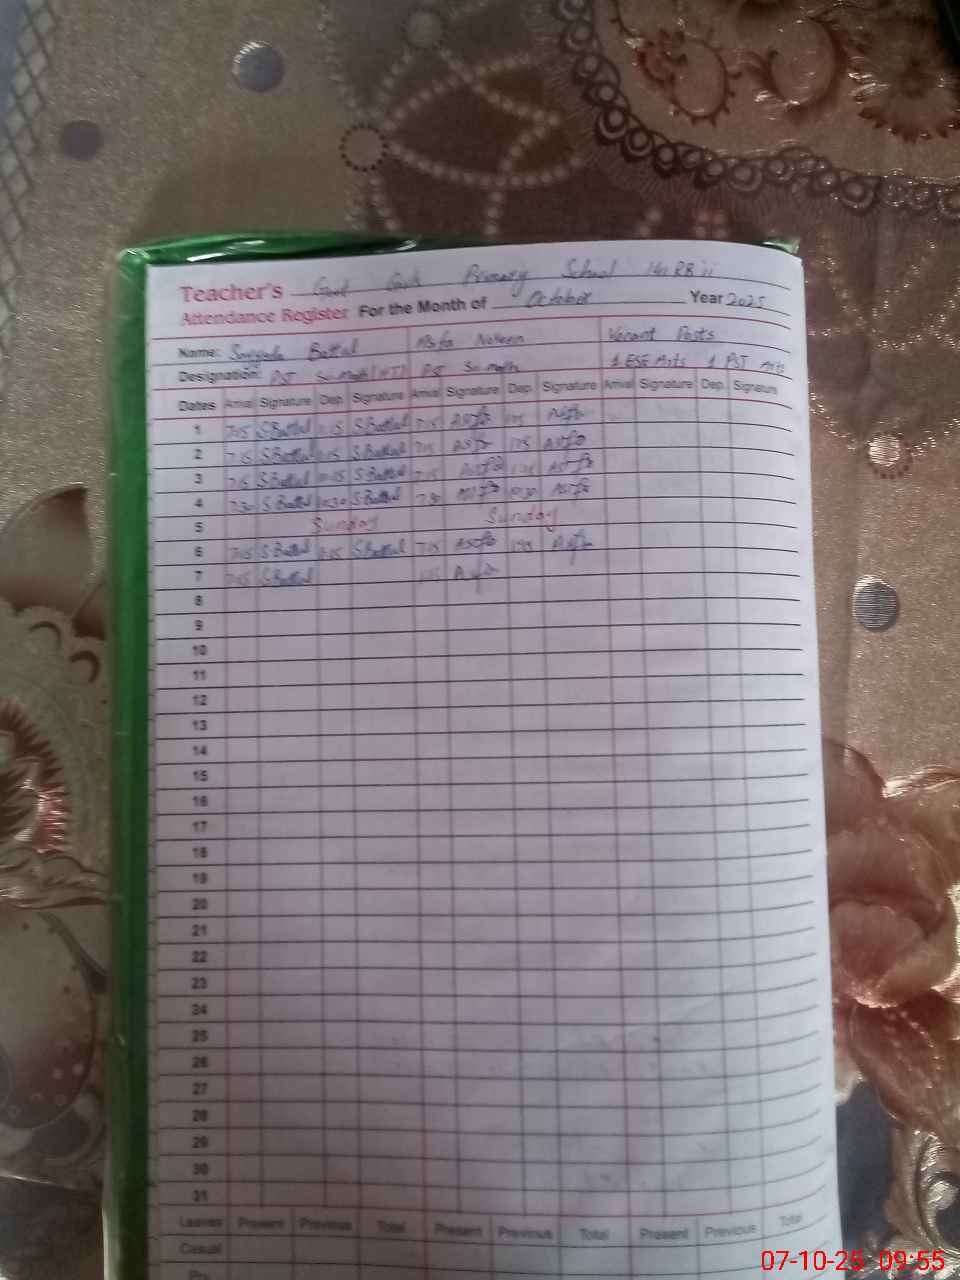 Teacher's Govt Primary School
Attendance Register For the Month of October Year 2025
Name: Battul Vacant Posts
Designation: PST Sc-math PST Sc-math 1 ESE Arts 1 PST Arts
Dates Arrival Signature Dep. Signature Arrival Signature Dep. Signature Arrival Signature Dep. Signature
1 7:15 S.Battul S.Battul 7:15 Asfa Asfa
2 7:15 S.Battul S.Battul Asfa Asfa
3 7:15 S.Battul S.Battul 7:15 Asfa Asfa
4 7:30 S.Battul S.Battul 7:30 Asfa Asfa
5 Sunday Sunday
6 7:15 S.Battul S.Battul 7:15 Asfa Asfa
7 7:15 S.Battul Asfa
8
9
10
11
12
13
14
15
16
17
18
19
20
21
22
23
24
25
26
27
28
29
30
31
Leaves Present Previous Total Present Previous Total Present Previous Total
Casual
07-10-25 09:55